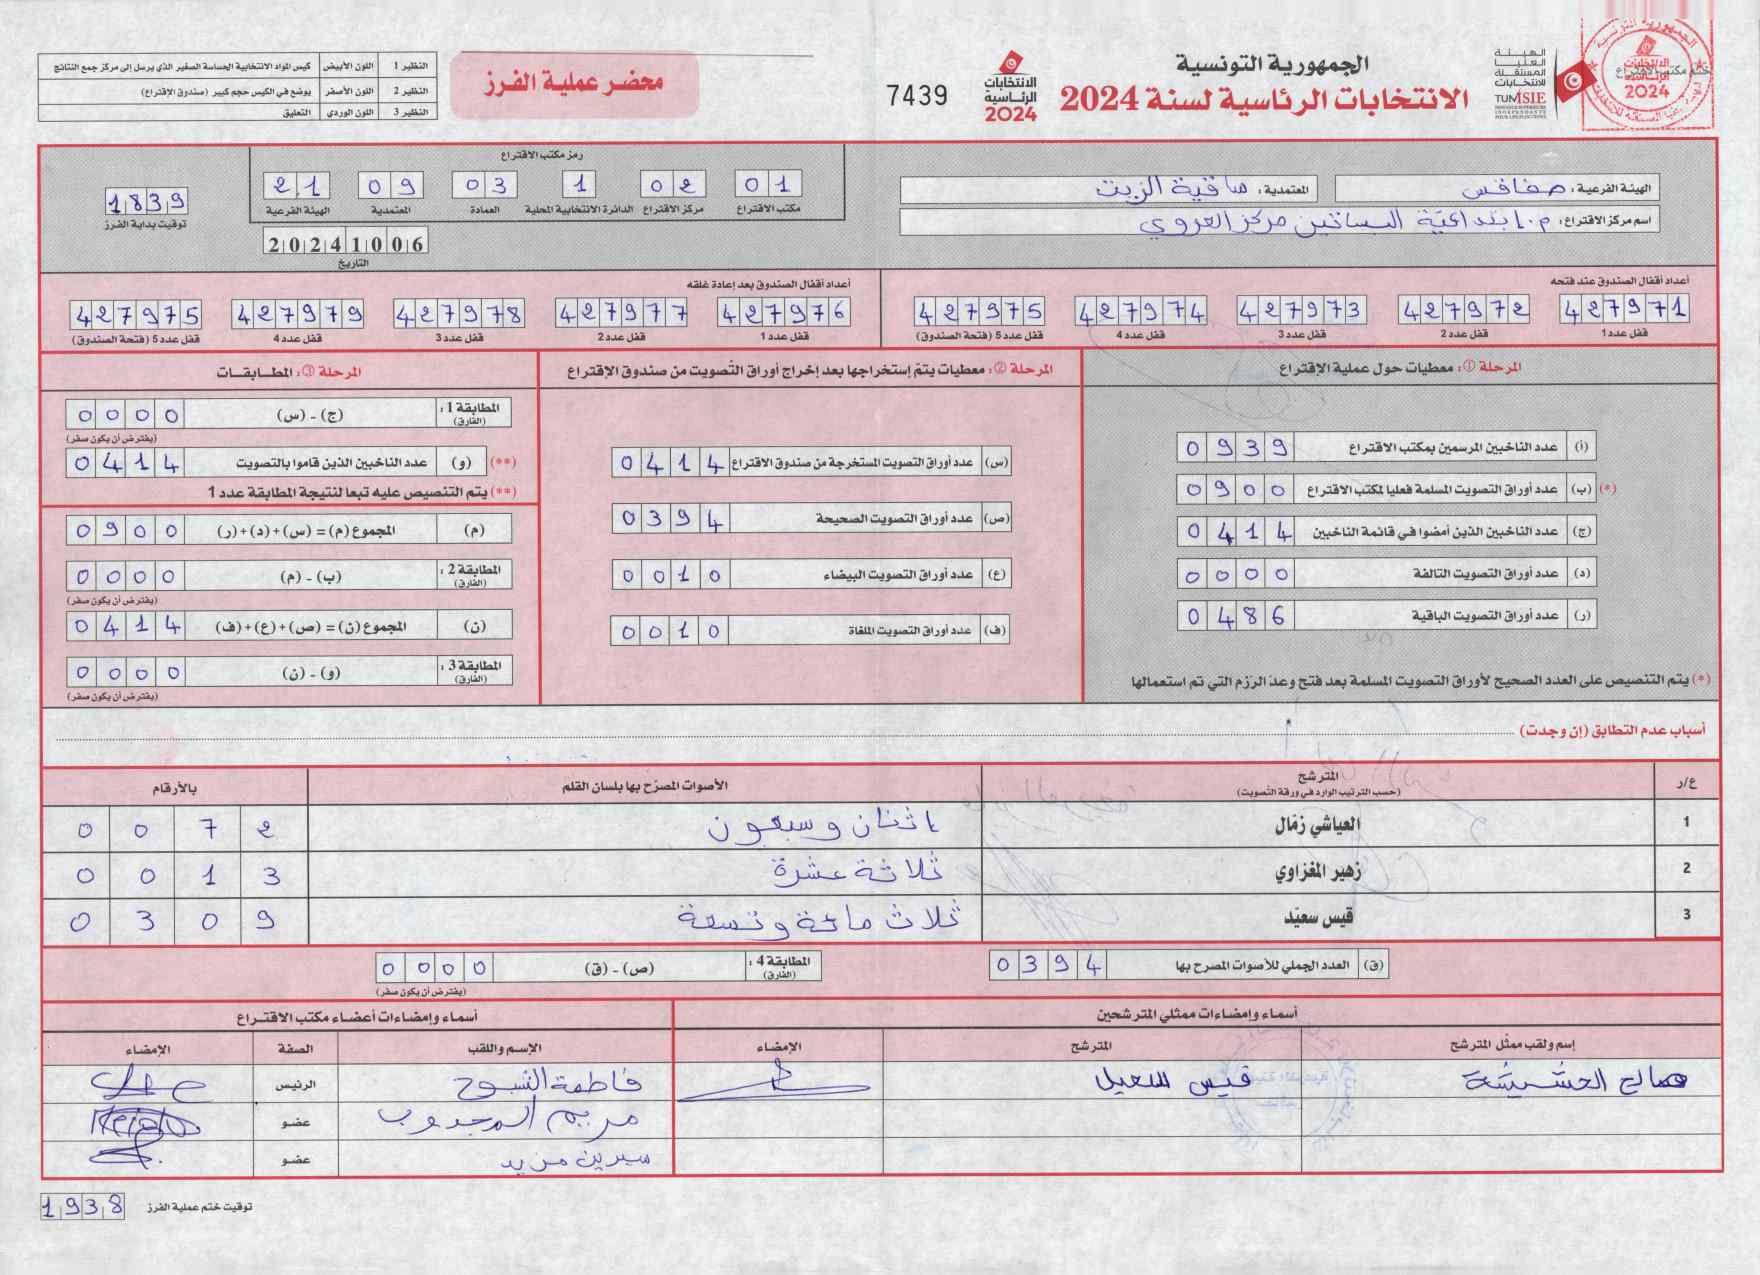 الجمهورية التونسية
الانتخابات الرئاسية لسنة 2024
الهيئة العليا المستقلة للانتخابات
TUNISIE
ختم مكتب الاقتراع
الانتخابات الرئاسية 2024
7439
محضر عملية الفرز
النظير 1 اللون الأبيض كيس المواد الانتخابية الحساسة الصغير الذي يرسل إلى مركز جمع النتائج
النظير 2 اللون الأصفر يوضع في الكيس حجم كبير (صندوق الإقتراع)
النظير 3 اللون الوردي التعليق
الهيئة الفرعية: صفاقس
المعتمدية: ساقية الزيت
اسم مركز الاقتراع: م.ابتدائية البساتين مركز العروي
رمز مكتب الاقتراع
01 02 1 03 09 21
مكتب الاقتراع مركز الاقتراع الدائرة الانتخابية المحلية العمادة المعتمدية الهيئة الفرعية
20241006
التاريخ
1839
توقيت بداية الفرز
أعداد أقفال الصندوق عند فتحه
427971 427972 427973 427974 427975
قفل عدد 1 قفل عدد 2 قفل عدد 3 قفل عدد 4 قفل عدد 5 (فتحة الصندوق)
أعداد أقفال الصندوق بعد إعادة غلقه
427976 427977 427978 427979 427975
قفل عدد 1 قفل عدد 2 قفل عدد 3 قفل عدد 4 قفل عدد 5 (فتحة الصندوق)
المرحلة ①: معطيات حول عملية الإقتراع
(أ) عدد الناخبين المرسمين بمكتب الاقتراع 0939
(*) (ب) عدد أوراق التصويت المسلمة فعليا لمكتب الاقتراع 0900
(ج) عدد الناخبين الذين أمضوا في قائمة الناخبين 0414
(د) عدد أوراق التصويت التالفة 0000
(ر) عدد أوراق التصويت الباقية 0486
(*) يتم التنصيص على العدد الصحيح لأوراق التصويت المسلمة بعد فتح وعد الرزم التي تم استعمالها
المرحلة ②: معطيات يتم إستخراجها بعد إخراج أوراق التصويت من صندوق الإقتراع
(س) عدد أوراق التصويت المستخرجة من صندوق الاقتراع 0414
(ص) عدد أوراق التصويت الصحيحة 0394
(ع) عدد أوراق التصويت البيضاء 0010
(ف) عدد أوراق التصويت الملغاة 0010
المرحلة ③: المطابقات
المطابقة 1: (الفارق) (ج) - (س) 0000
(يفترض أن يكون صفر)
(**) (و) عدد الناخبين الذين قاموا بالتصويت 0414
(**) يتم التنصيص عليه تبعا لنتيجة المطابقة عدد 1
(م) المجموع (م) = (س)+(د)+(ر) 0900
المطابقة 2: (الفارق) (ب) - (م) 0000
(يفترض أن يكون صفر)
(ن) المجموع (ن) = (ص)+(ع)+(ف) 0414
المطابقة 3: (الفارق) (و) - (ن) 0000
(يفترض أن يكون صفر)
أسباب عدم التطابق (إن وجدت)
ع/ر المترشح (حسب الترتيب الوارد في ورقة التصويت) الأصوات المصرّح بها بلسان القلم بالأرقام
1 العياشي زمّال اثنان وسبعون 0072
2 زهير المغزاوي ثلاثة عشرة 0013
3 قيس سعيّد ثلاث مائة وتسعة 0309
(ق) العدد الجملي للأصوات المصرح بها 0394
المطابقة 4: (الفارق) (ص) - (ق) 0000
(يفترض أن يكون صفر)
أسماء وإمضاءات ممثلي المترشحين
إسم ولقب ممثّل المترشح المترشح الإمضاء
صالح الحشيشة قيس سعيد
أسماء وإمضاءات أعضاء مكتب الاقتراع
الإسم واللقب الصفة الإمضاء
فاطمة الشبوح الرئيس
مريم المجدوب عضو
سيرين مزيد عضو
توقيت ختم عملية الفرز 1938